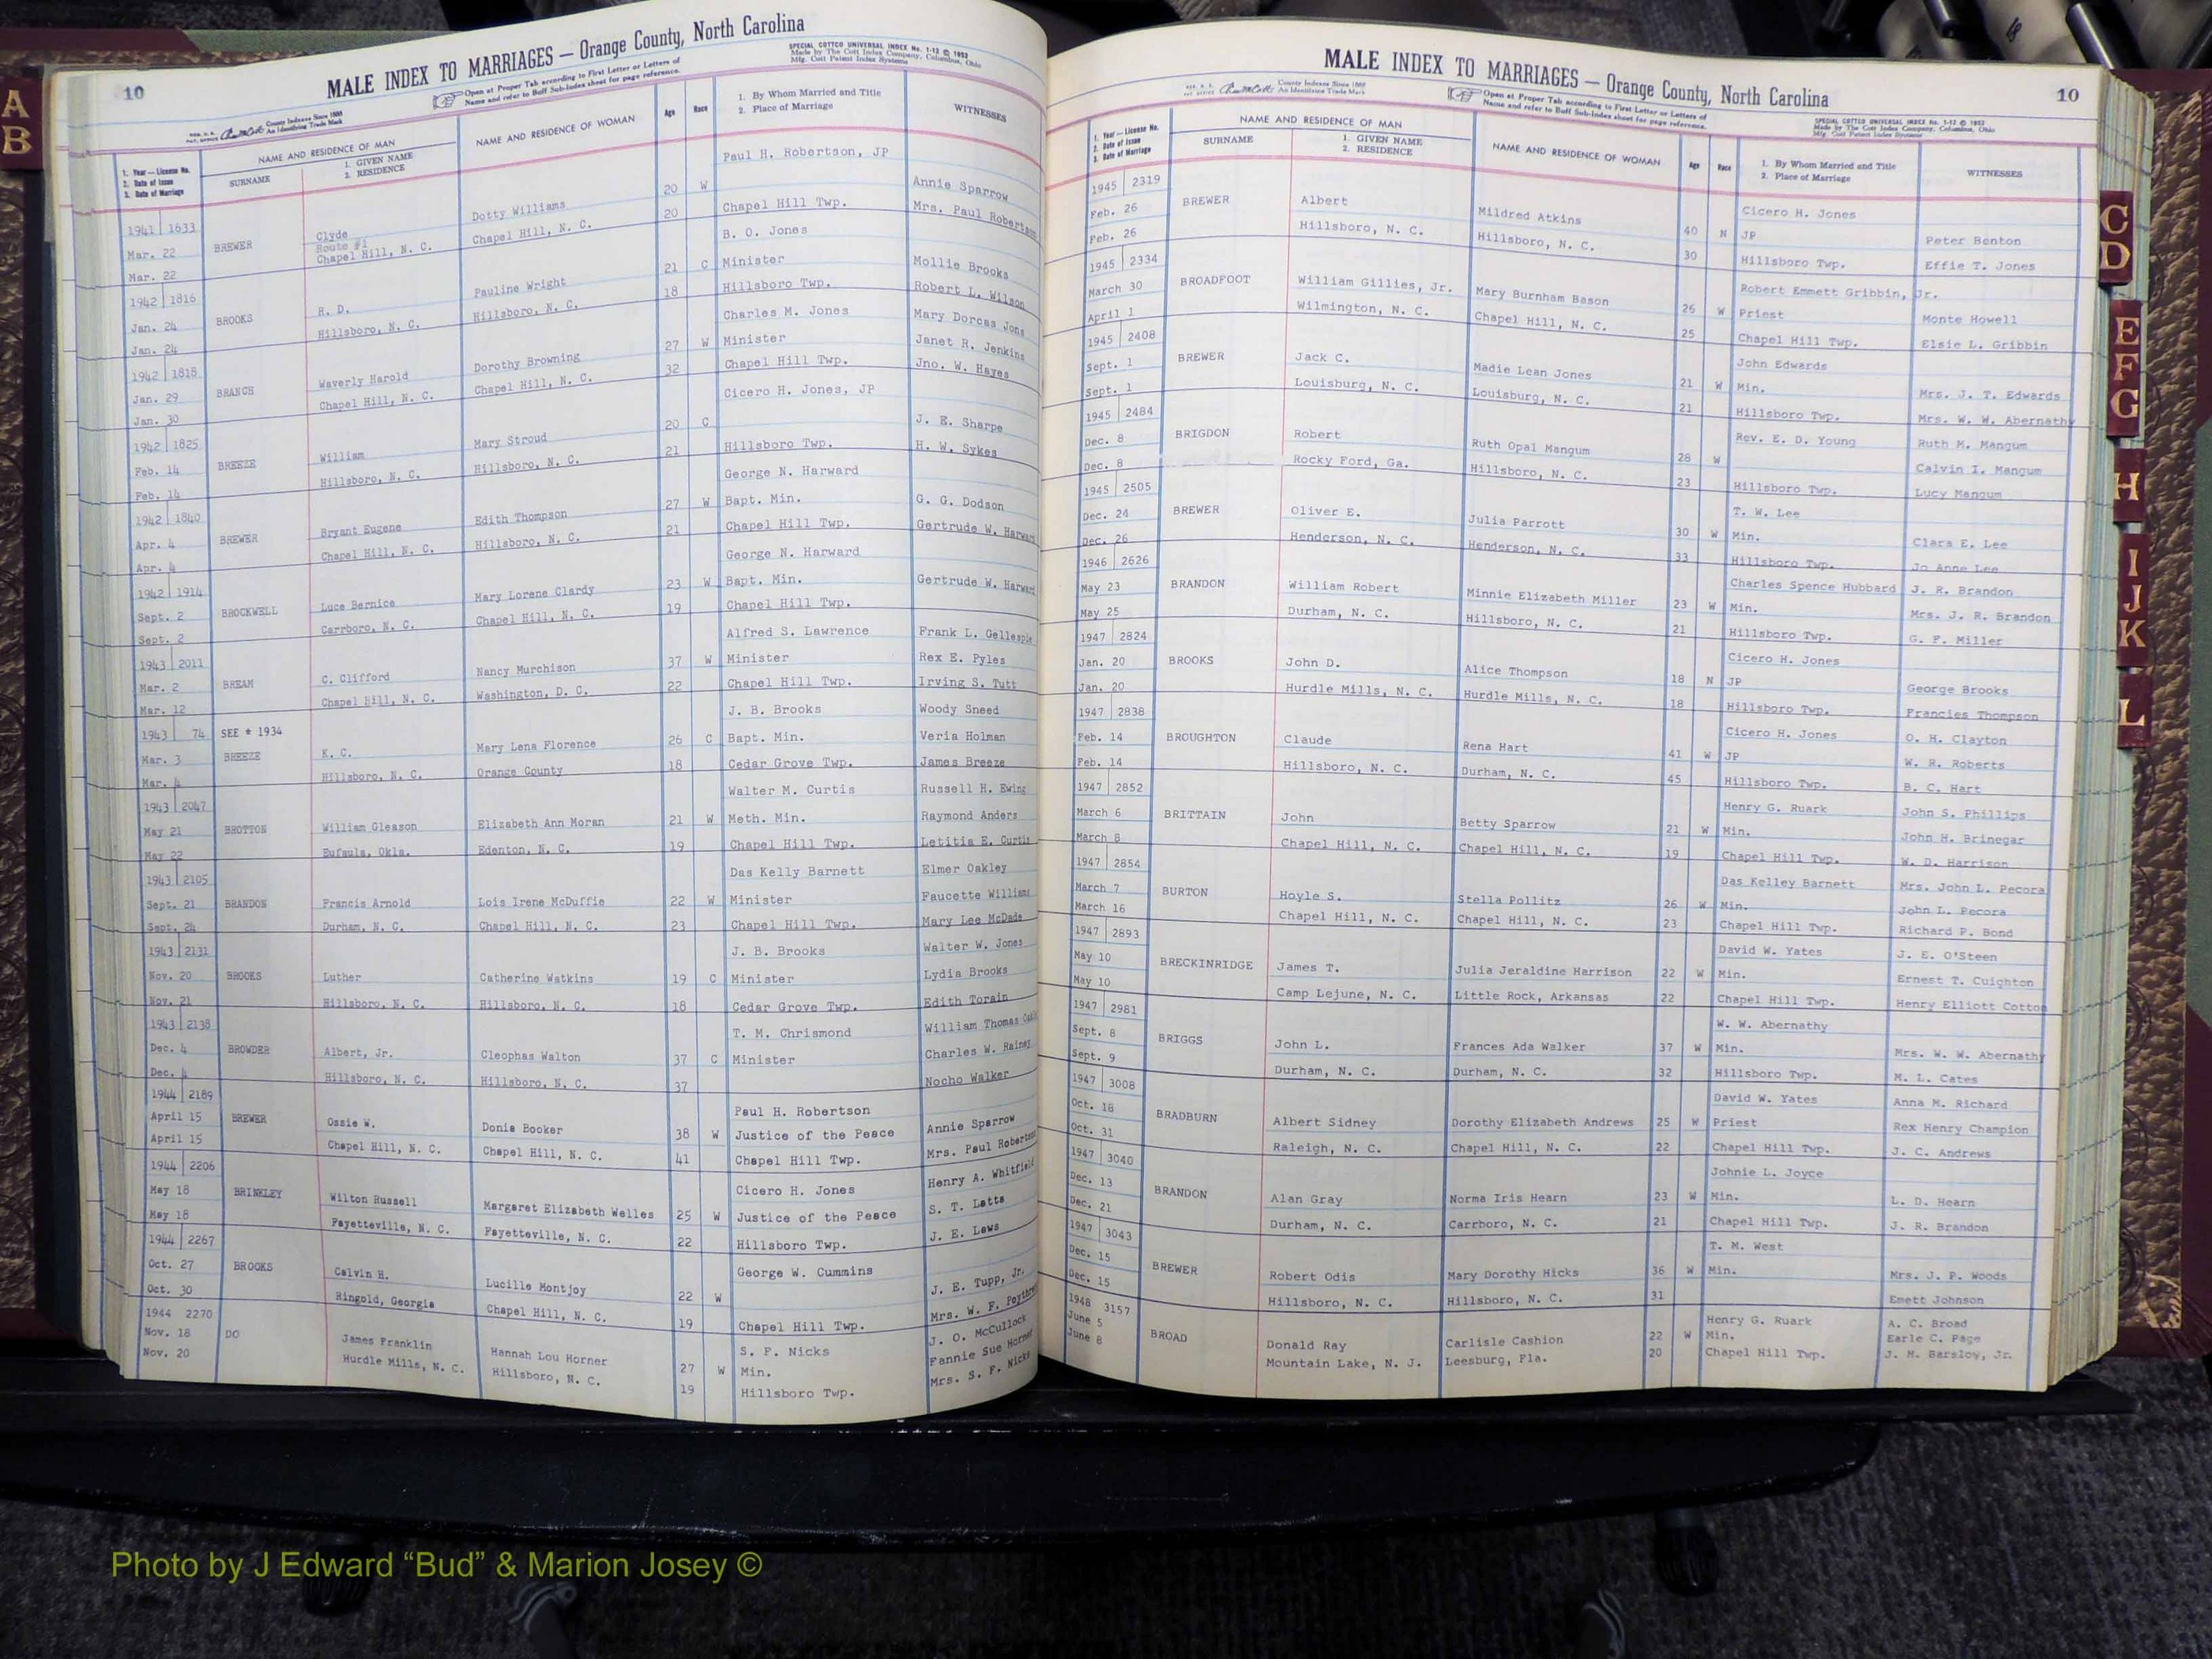 10
MALE INDEX TO MARRIAGES — Orange County, North Carolina
SPECIAL COTTCO UNIVERSAL INDEX No. 1-12 © 1952
Made by The Cott Index Company, Columbus, Ohio
Mfg. Cott Patent Index Systems
Open at Proper Tab according to First Letter or Letters of
Name and refer to Buff Sub-Index sheet for page reference.
County Indexes Since 1888
An Identifying Trade Mark
1. Year — License No.
2. Date of Issue
3. Date of Marriage
NAME AND RESIDENCE OF MAN
SURNAME
1. GIVEN NAME
2. RESIDENCE
NAME AND RESIDENCE OF WOMAN
Age
Race
1. By Whom Married and Title
2. Place of Marriage
WITNESSES
Paul H. Robertson, JP
1941 1633 Dotty Williams 20 W Annie Sparrow
Mar. 22 BREWER Clyde Route #1 Chapel Hill, N. C. Chapel Hill, N. C. 20 Chapel Hill Twp. Mrs. Paul Robertson
Mar. 22
1942 1816 B. O. Jones
Jan. 24 BROOKS R. D. Pauline Wright 21 C Minister Mollie Brooks
Jan. 24 Hillsboro, N. C. Hillsboro, N. C. 18 Hillsboro Twp. Robert L. Wilson
1942 1818 Charles M. Jones Mary Dorcas Jons
Jan. 29 BRANCH Waverly Harold Dorothy Browning 27 W Minister Janet R. Jenkins
Jan. 30 Chapel Hill, N. C. Chapel Hill, N. C. 32 Chapel Hill Twp. Jno. W. Hayes
1942 1825 Cicero H. Jones, JP
Feb. 14 BREEZE William Mary Stroud 20 C J. E. Sharpe
Feb. 14 Hillsboro, N. C. Hillsboro, N. C. 21 Hillsboro Twp. H. W. Sykes
1942 1840 George N. Harward
Apr. 4 BREWER Bryant Eugene Edith Thompson 27 W Bapt. Min. G. G. Dodson
Apr. 4 Chapel Hill, N. C. Hillsboro, N. C. 21 Chapel Hill Twp. Gertrude W. Harward
1942 1914 George N. Harward
Sept. 2 BROCKWELL Luce Bernice Mary Lorene Clardy 23 W Bapt. Min. Gertrude W. Harward
Sept. 2 Carrboro, N. C. Chapel Hill, N. C. 19 Chapel Hill Twp.
1943 2011 Alfred S. Lawrence Frank L. Gellespie
Mar. 2 BREAM C. Clifford Nancy Murchison 37 W Minister Rex E. Pyles
Mar. 12 Chapel Hill, N. C. Washington, D. C. 22 Chapel Hill Twp. Irving S. Tutt
1943 74 SEE * 1934 J. B. Brooks Woody Sneed
Mar. 3 BREEZE K. C. Mary Lena Florence 26 C Bapt. Min. Veria Holman
Mar. 4 Hillsboro, N. C. Orange County 18 Cedar Grove Twp. James Breeze
1943 2047 Walter M. Curtis Russell H. Ewing
May 21 BROTTON William Gleason Elizabeth Ann Moran 21 W Meth. Min. Raymond Anders
May 22 Eufaula, Okla. Edenton, N. C. 19 Chapel Hill Twp. Letitia E. Curtis
1943 2105 Das Kelly Barnett Elmer Oakley
Sept. 21 BRANDON Francis Arnold Lois Irene McDuffie 22 W Minister Faucette Williams
Sept. 24 Durham, N. C. Chapel Hill, N. C. 23 Chapel Hill Twp. Mary Lee McDade
1943 2131 J. B. Brooks Walter W. Jones
Nov. 20 BROOKS Luther Catherine Watkins 19 C Minister Lydia Brooks
Nov. 21 Hillsboro, N. C. Hillsboro, N. C. 18 Cedar Grove Twp. Edith Torain
1943 2138 T. M. Chrismond William Thomas
Dec. 4 BROWDER Albert, Jr. Cleophas Walton 37 C Minister Charles W. Rainey
Dec. 4 Hillsboro, N. C. Hillsboro, N. C. 37 Nocho Walker
1944 2189 Paul H. Robertson
April 15 BREWER Ossie W. Donie Booker 38 W Justice of the Peace Annie Sparrow
April 15 Chapel Hill, N. C. Chapel Hill, N. C. 41 Chapel Hill Twp. Mrs. Paul Robertson
1944 2206 Cicero H. Jones Henry A. Whitfield
May 18 BRINKLEY Wilton Russell Margaret Elizabeth Welles 25 W Justice of the Peace S. T. Latta
May 18 Fayetteville, N. C. Fayetteville, N. C. 22 Hillsboro Twp. J. E. Laws
1944 2267 George W. Cummins
Oct. 27 BROOKS Calvin H. Lucille Montjoy 22 W J. E. Tupp, Jr.
Oct. 30 Ringold, Georgia Chapel Hill, N. C. 19 Chapel Hill Twp. Mrs. W. F.
1944 2270 S. F. Nicks J. O. McCullock
Nov. 18 DO James Franklin Hannah Lou Horner 27 W Min. Fannie Sue Horner
Nov. 20 Hurdle Mills, N. C. Hillsboro, N. C. 19 Hillsboro Twp. Mrs. S. F. Nicks
MALE INDEX TO MARRIAGES — Orange County, North Carolina
10
County Indexes Since 1888
An Identifying Trade Mark
Open at Proper Tab according to First Letter or Letters of
Name and refer to Buff Sub-Index sheet for page reference.
SPECIAL COTTCO UNIVERSAL INDEX No. 1-12 © 1952
Made by The Cott Index Company, Columbus, Ohio
Mfg. Cott Patent Index Systems
1. Year — License No.
2. Date of Issue
3. Date of Marriage
NAME AND RESIDENCE OF MAN
SURNAME
1. GIVEN NAME
2. RESIDENCE
NAME AND RESIDENCE OF WOMAN
Age
Race
1. By Whom Married and Title
2. Place of Marriage
WITNESSES
1945 2319 Cicero H. Jones
Feb. 26 BREWER Albert Mildred Atkins 40 N JP Peter Benton
Feb. 26 Hillsboro, N. C. Hillsboro, N. C. 30 Hillsboro Twp. Effie T. Jones
1945 2334 Robert Emmett Gribbin, Jr.
March 30 BROADFOOT William Gillies, Jr. Mary Burnham Bason 26 W Priest Monte Howell
April 1 Wilmington, N. C. Chapel Hill, N. C. 25 Chapel Hill Twp. Elsie L. Gribbin
1945 2408 John Edwards
Sept. 1 BREWER Jack C. Madie Lean Jones 21 W Min. Mrs. J. T. Edwards
Sept. 1 Louisburg, N. C. Louisburg, N. C. 21 Hillsboro Twp. Mrs. W. W. Abernathy
1945 2484 Rev. E. D. Young Ruth M. Mangum
Dec. 8 BRIGDON Robert Ruth Opal Mangum 28 W Calvin I. Mangum
Dec. 8 Rocky Ford, Ga. Hillsboro, N. C. 23 Hillsboro Twp. Lucy Mangum
1945 2505 T. W. Lee
Dec. 24 BREWER Oliver E. Julia Parrott 30 W Min. Clara E. Lee
Dec. 26 Henderson, N. C. Henderson, N. C. 33 Hillsboro Twp. Jo Anne Lee
1946 2626 Charles Spence Hubbard J. R. Brandon
May 23 BRANDON William Robert Minnie Elizabeth Miller 23 W Min. Mrs. J. R. Brandon
May 25 Durham, N. C. Hillsboro, N. C. 21 Hillsboro Twp. G. F. Miller
1947 2824 Cicero H. Jones
Jan. 20 BROOKS John D. Alice Thompson 18 N JP George Brooks
Jan. 20 Hurdle Mills, N. C. Hurdle Mills, N. C. 18 Hillsboro Twp. Francies Thompson
1947 2838 Cicero H. Jones O. H. Clayton
Feb. 14 BROUGHTON Claude Rena Hart 41 W JP W. R. Roberts
Feb. 14 Hillsboro, N. C. Durham, N. C. 45 Hillsboro Twp. B. C. Hart
1947 2852 Henry G. Ruark John S. Phillips
March 6 BRITTAIN John Betty Sparrow 21 W Min. John H. Brinegar
March 8 Chapel Hill, N. C. Chapel Hill, N. C. 19 Chapel Hill Twp. W. D. Harrison
1947 2854 Das Kelley Barnett Mrs. John L. Pecora
March 7 BURTON Hoyle S. Stella Pollitz 26 W Min. John L. Pecora
March 16 Chapel Hill, N. C. Chapel Hill, N. C. 23 Chapel Hill Twp. Richard P. Bond
1947 2893 David W. Yates J. E. O'Steen
May 10 BRECKINRIDGE James T. Julia Jeraldine Harrison 22 W Min. Ernest T. Cuighton
May 10 Camp Lejune, N. C. Little Rock, Arkansas 22 Chapel Hill Twp. Henry Elliott Cotton
1947 2981 W. W. Abernathy
Sept. 8 BRIGGS John L. Frances Ada Walker 37 W Min. Mrs. W. W. Abernathy
Sept. 9 Durham, N. C. Durham, N. C. 32 Hillsboro Twp. M. L. Cates
1947 3008 David W. Yates Anna M. Richard
Oct. 18 BRADBURN Albert Sidney Dorothy Elizabeth Andrews 25 W Priest Rex Henry Champion
Oct. 31 Raleigh, N. C. Chapel Hill, N. C. 22 Chapel Hill Twp. J. C. Andrews
1947 3040 Johnie L. Joyce
Dec. 13 BRANDON Alan Gray Norma Iris Hearn 23 W Min. L. D. Hearn
Dec. 21 Durham, N. C. Carrboro, N. C. 21 Chapel Hill Twp. J. R. Brandon
1947 3043 T. M. West
Dec. 15 BREWER Robert Odis Mary Dorothy Hicks 36 W Min. Mrs. J. P. Woods
Dec. 15 Hillsboro, N. C. Hillsboro, N. C. 31 Emett Johnson
1948 3157 Henry G. Ruark A. C. Broad
June 5 BROAD Donald Ray Carlisle Cashion 22 W Min. Earle C. Page
June 8 Mountain Lake, N. J. Leesburg, Fla. 20 Chapel Hill Twp. J. M. Barslow, Jr.
A
B
C
D
E
F
G
H
I
J
K
L
Photo by J Edward “Bud” & Marion Josey ©